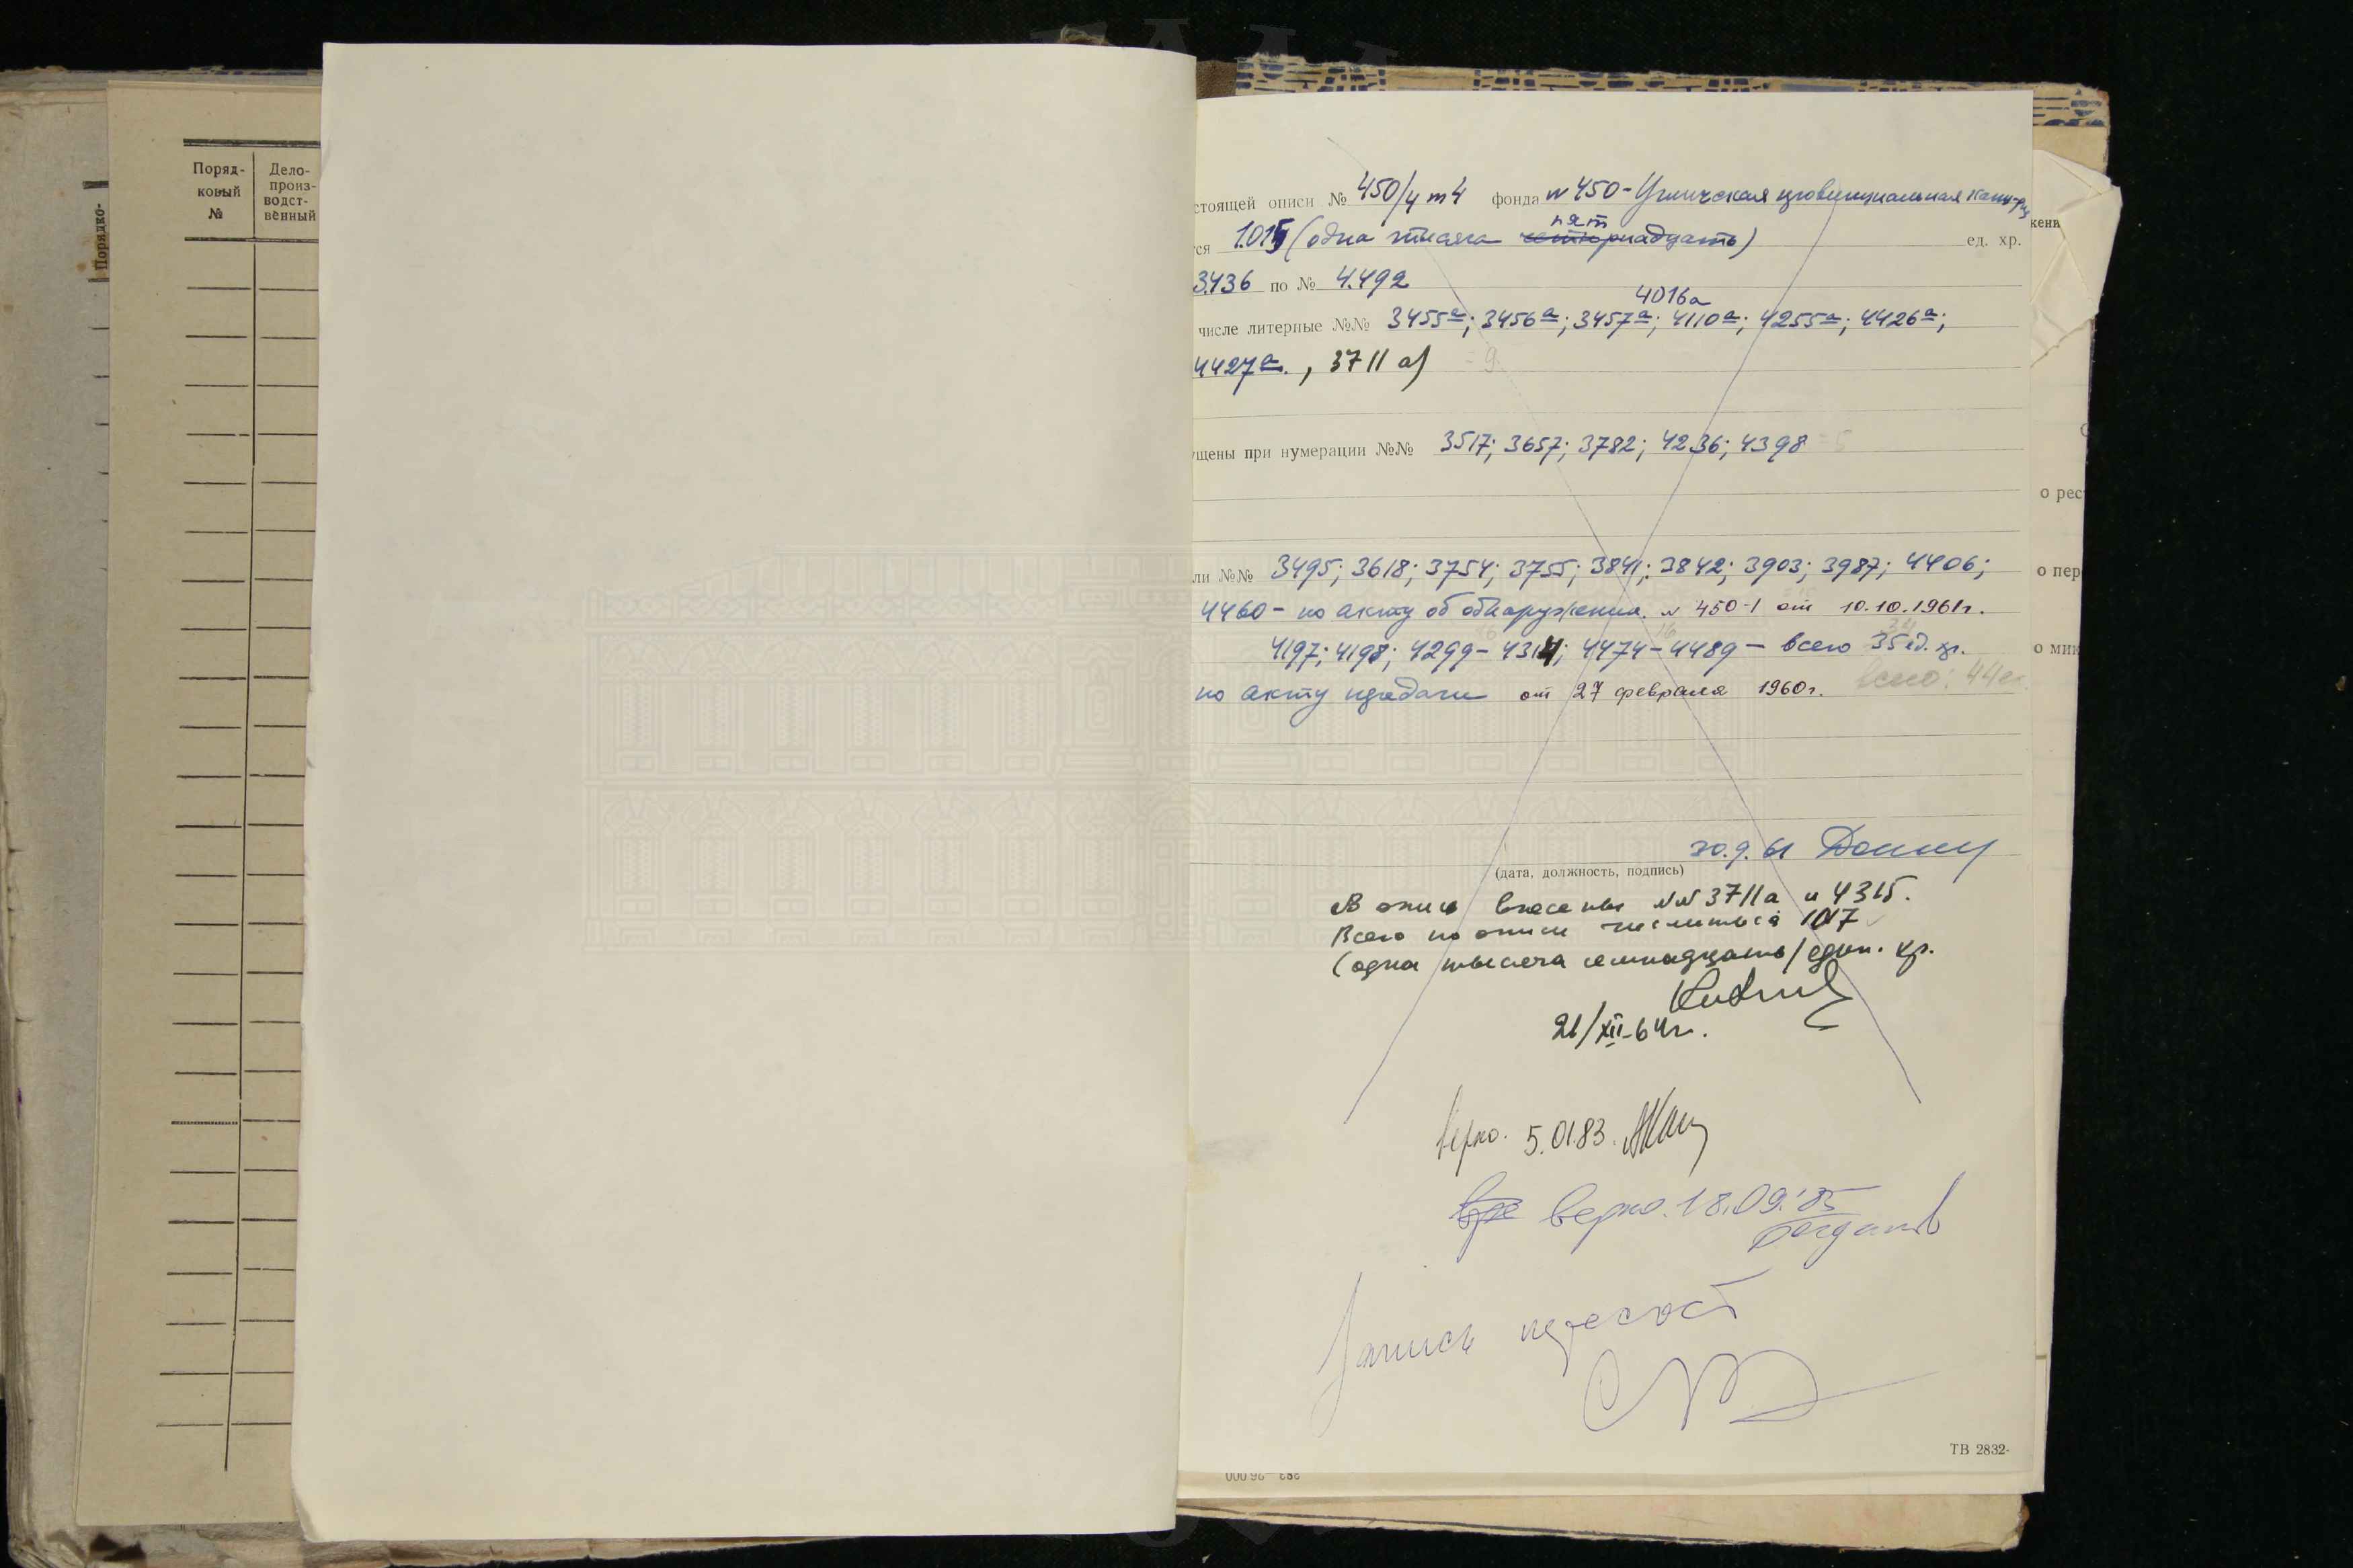 Порядко-
Поряд-
ковый
№
Дело-
произ-
водст-
венный
стоящей описи № 450/4 т 4 фонда № 450 - Угличская провинциальная канц-рия
пят
ся 1.015 (одна тысяча четырнадцать) ед. хр.
3.436 по № 4.492
4016а
числе литерные №№ 3455а; 3456а; 3457а; 4110а; 4255а; 4426а;
4427а. , 3711 а) = 9
ущены при нумерации №№ 3517; 3657; 3782; 4236; 4398 = 5
ли №№ 3495; 3618; 3754; 3755; 3841; 3842; 3903; 3987; 4406;
4460 - по акту об обнаружении № 450-1 от 10.10.1961г.
16 16 34
4197; 4198; 4299 - 4314; 4474 - 4489 - всего 35 ед. хр.
по акту передачи от 27 февраля 1960г. всего: 44
30.9.61
(дата, должность, подпись)
В опись внесены №№ 3711а и 4315.
Всего по описи числится 1017
(одна тысяча семнадцать) един. хр.
21/XII-64г.
Верно. 5.01.83.
верно. 18.09.85
Богданов
Запись пересост
ТВ 2832-
жени
о рес
о пер
о мик